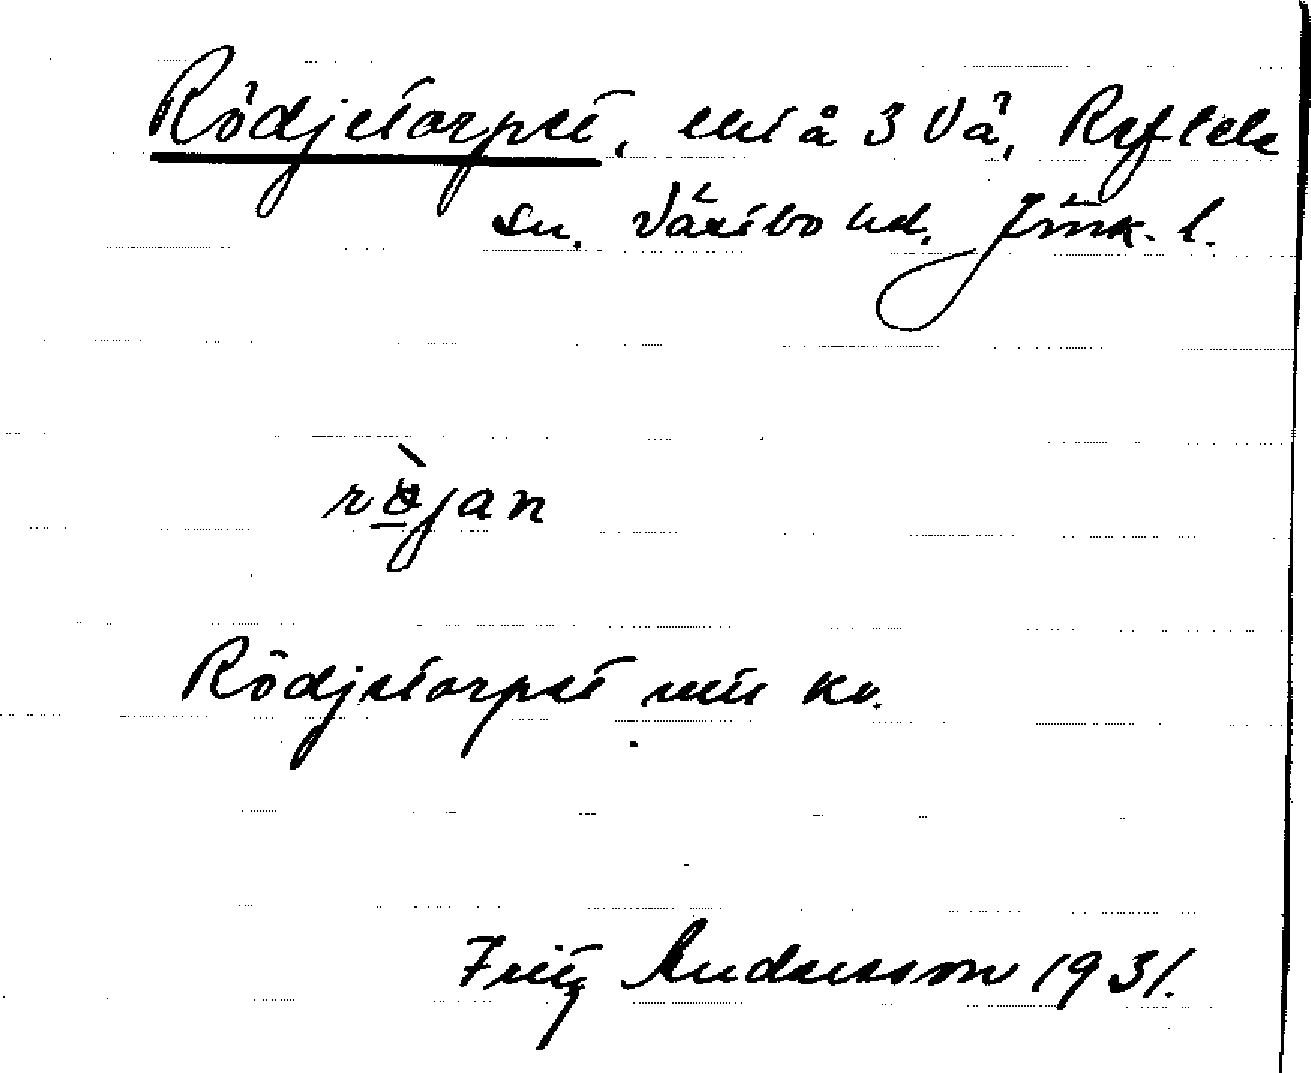 Rödjetorpet, ent å 3 Vå, Reftele
sn. Västbo hd, Jönk. l.
rö̀jan
Rödjetorpet mit kv.
Fritz Andersson 1931.